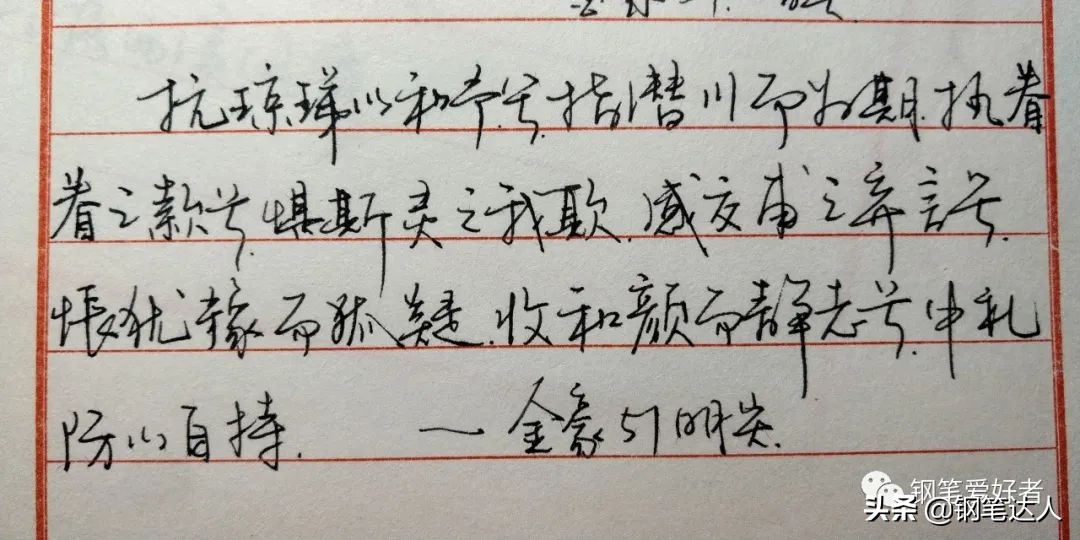 抗琼珶以和予兮.指潜川而为期.执眷
眷之款兮.惧斯灵之我欺.感交甫之弃言兮.
怅犹豫而狐疑.收和颜而静志兮.申礼
防以自持. 一金豪51明尖.
钢笔爱好者
头条@钢笔达人